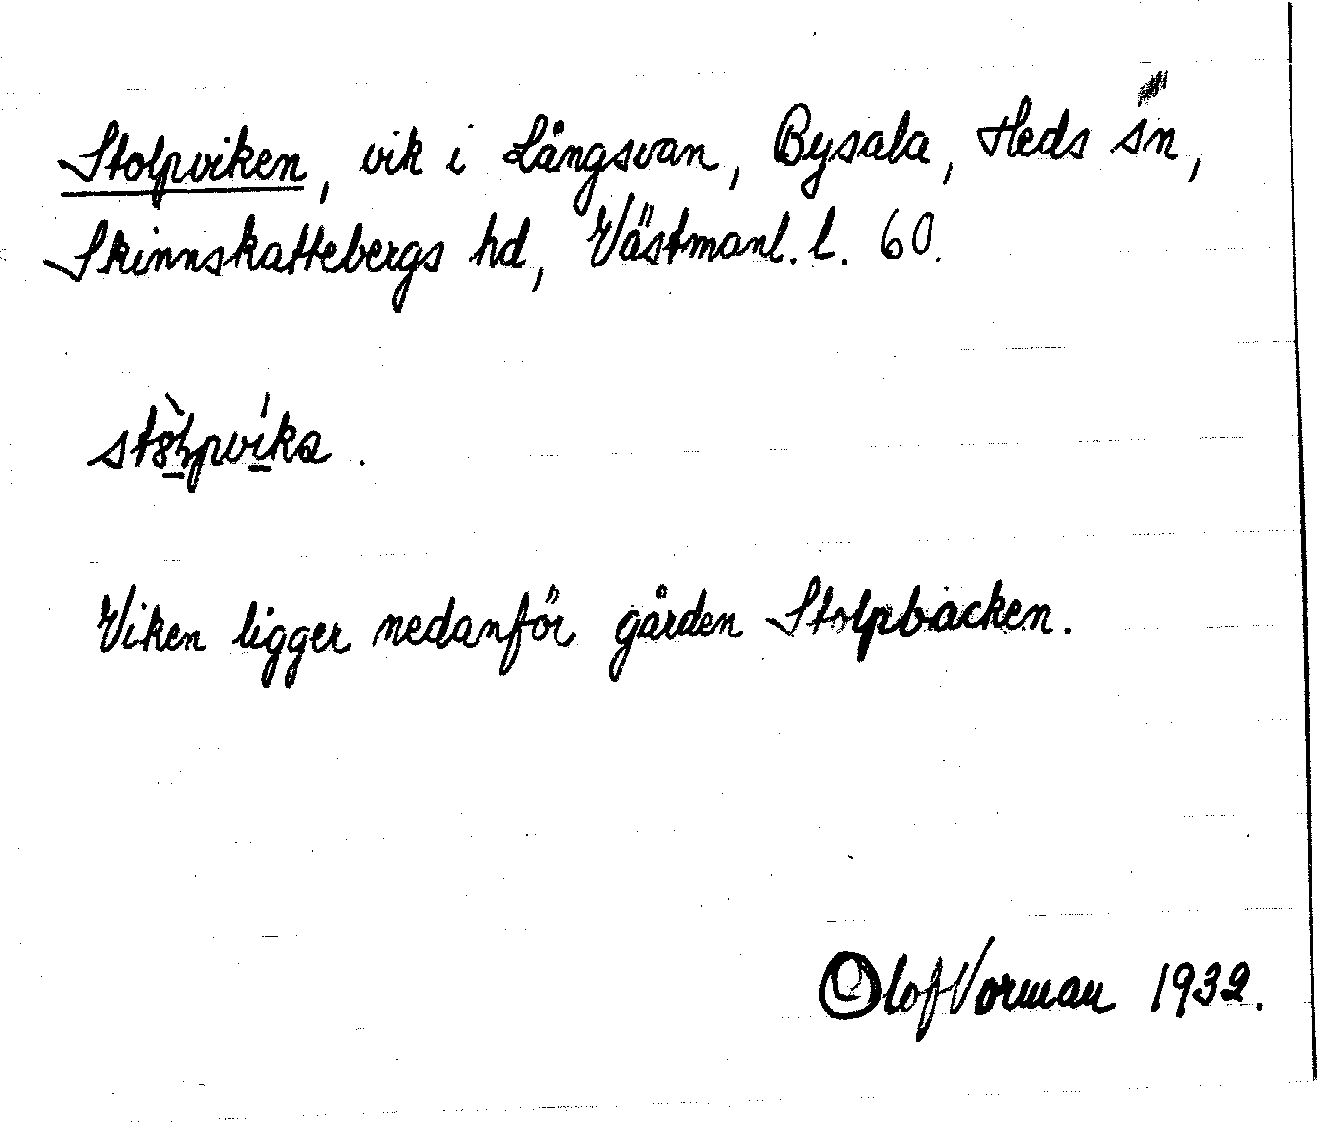 Stolpviken, vik i Långsvan, Bysala, Heds sn,
Skinnskattebergs hd, Västmanl. l. 60.
Viken ligger nedanför gården Stolpbacken.
Olof Vorman 1932.